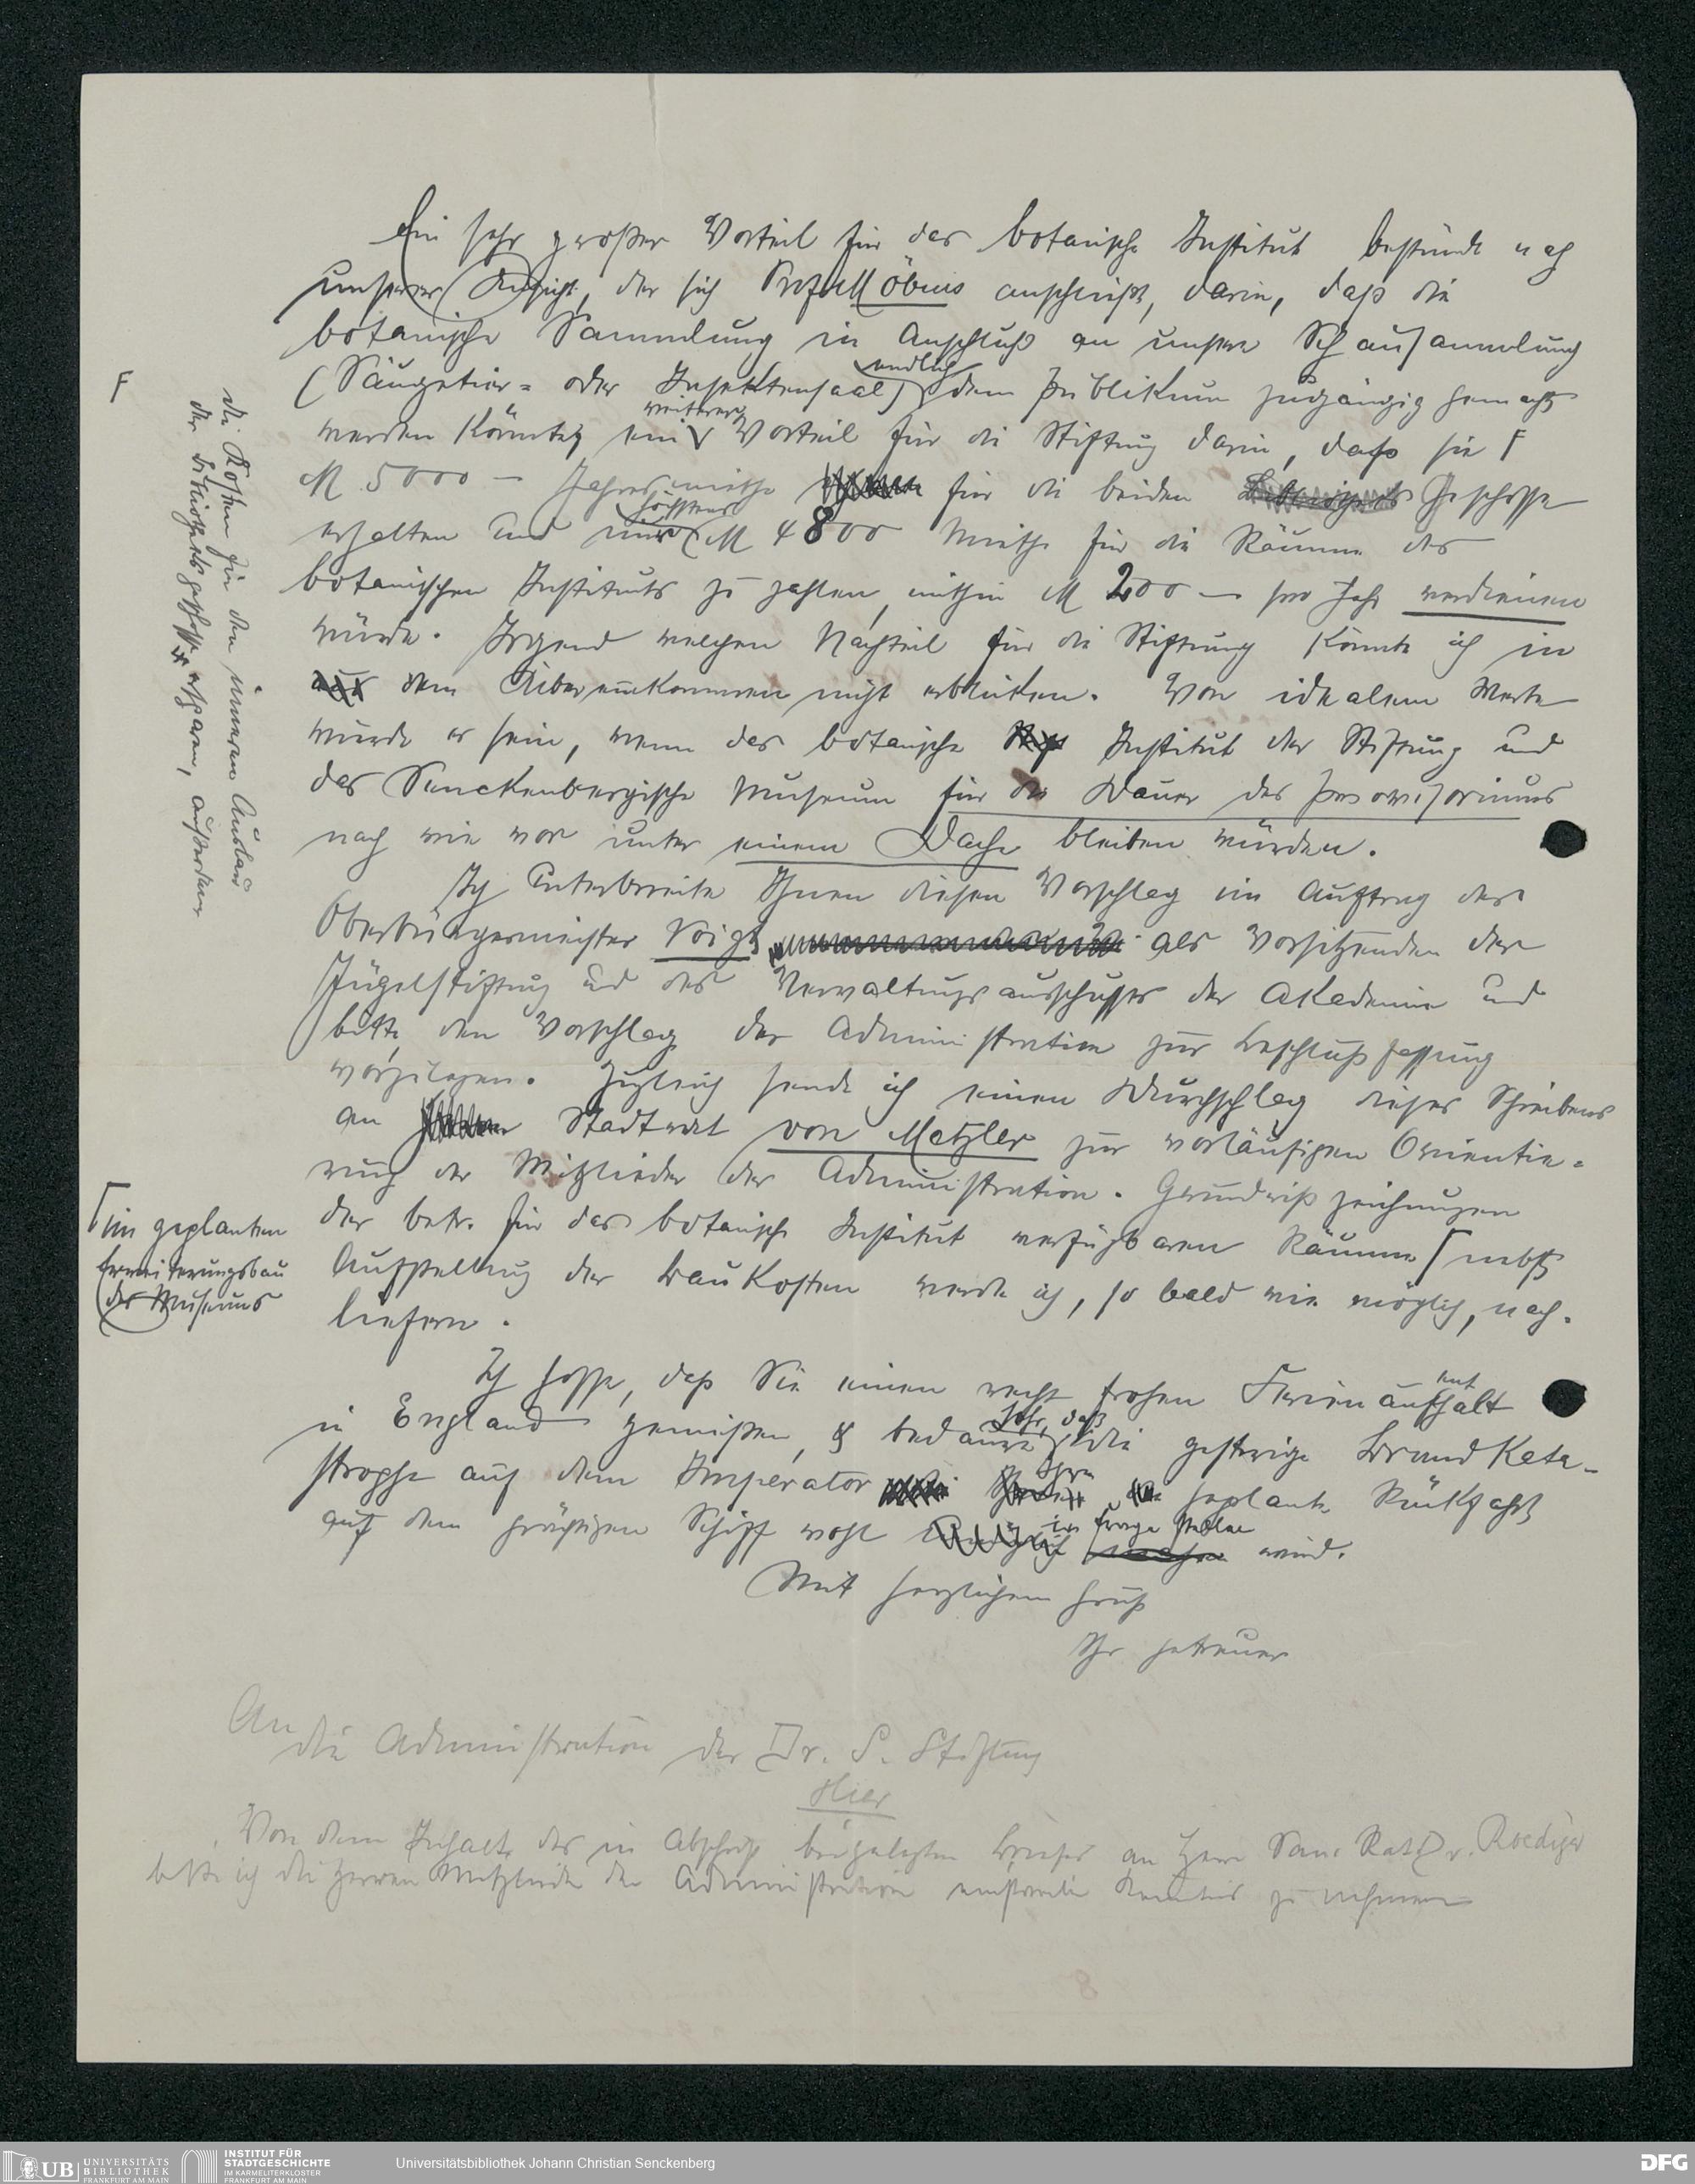 Ein sehr großer Vorteil für das botanische Institut bestünde nach
unserer Ansicht, der sich Prof. Möbius anschließt, darin, daß die
botanische Sammlung im Anschluß an unsere Schausammlung
(Säugetier- oder Insektensaal) endlich dem Publikum zugängig gemacht
werden könnte, ein weiterer Vorteil für die Stiftung darin, daß sie F
M 5000 — Jahresmiethe für die beiden Geschosse
erhalten und nur höchstens M 4800 Miethe für die Räume des
botanischen Instituts zu zahlen, mithin M 200 — pro Jahr verdienen
würde. Irgend welchen Nachteil für die Stiftung könnte ich in
dem Übereinkommen nicht erblicken. Von idealem Werte
würde es sein, wenn das botanische Institut der Stiftung und
das Senckenbergische Museum für die Dauer des Provisoriums
nach wie vor unter einem Dache bleiben würden.
F die Kosten für den inneren Ausbau
der Bibliotheksgeschosse ersparen, außerdem
Ich unterbreite Ihnen diesen Vorschlag im Auftrag des
Oberbürgermeister Voigt als Vorsitzenden der
Jügelstiftung und des Verwaltungsausschusses der Akademie und
bitte, den Vorschlag der Administration zur Beschlußfassung
vorzulegen. Zugleich sende ich einen Durchschlag dieses Schreibens
an Stadtrat von Metzler zur vorläufigen Orientie-
rung der Mitglieder der Administration. Grundrißzeichnungen
der betr. für das botanische Institut verfügbaren Räume Γ nebst
Aufstellung der Baukosten werde ich, so bald wie möglich, nach-
liefern.
Γ im geplanten
Erweiterungsbau
des Museums
Ich hoffe, daß Sie einen recht frohen Ferienaufenthalt
in England genießen, & bedaure sehr, daß die gestrige Brandkata-
strophe auf dem Imperator Ihre geplante Rückfahrt
auf dem prächtigen Schiff wohl in Frage stellen wird.
Mit herzlichem Gruß
Ihr getreuer
An
die Administration der Dr. S. Stiftung
Hier
Von dem Inhalt des in Abschrift beigelegten Briefes an Herrn San. Rat Dr. Roediger
bitte ich die Herren Mitglieder der Administration einstweilen Kenntnis zu nehmen
UB UNIVERSITÄTS
BIBLIOTHEK
FRANKFURT AM MAIN
INSTITUT FÜR
STADTGESCHICHTE
IM KARMELITERKLOSTER
FRANKFURT AM MAIN
Universitätsbibliothek Johann Christian Senckenberg
DFG